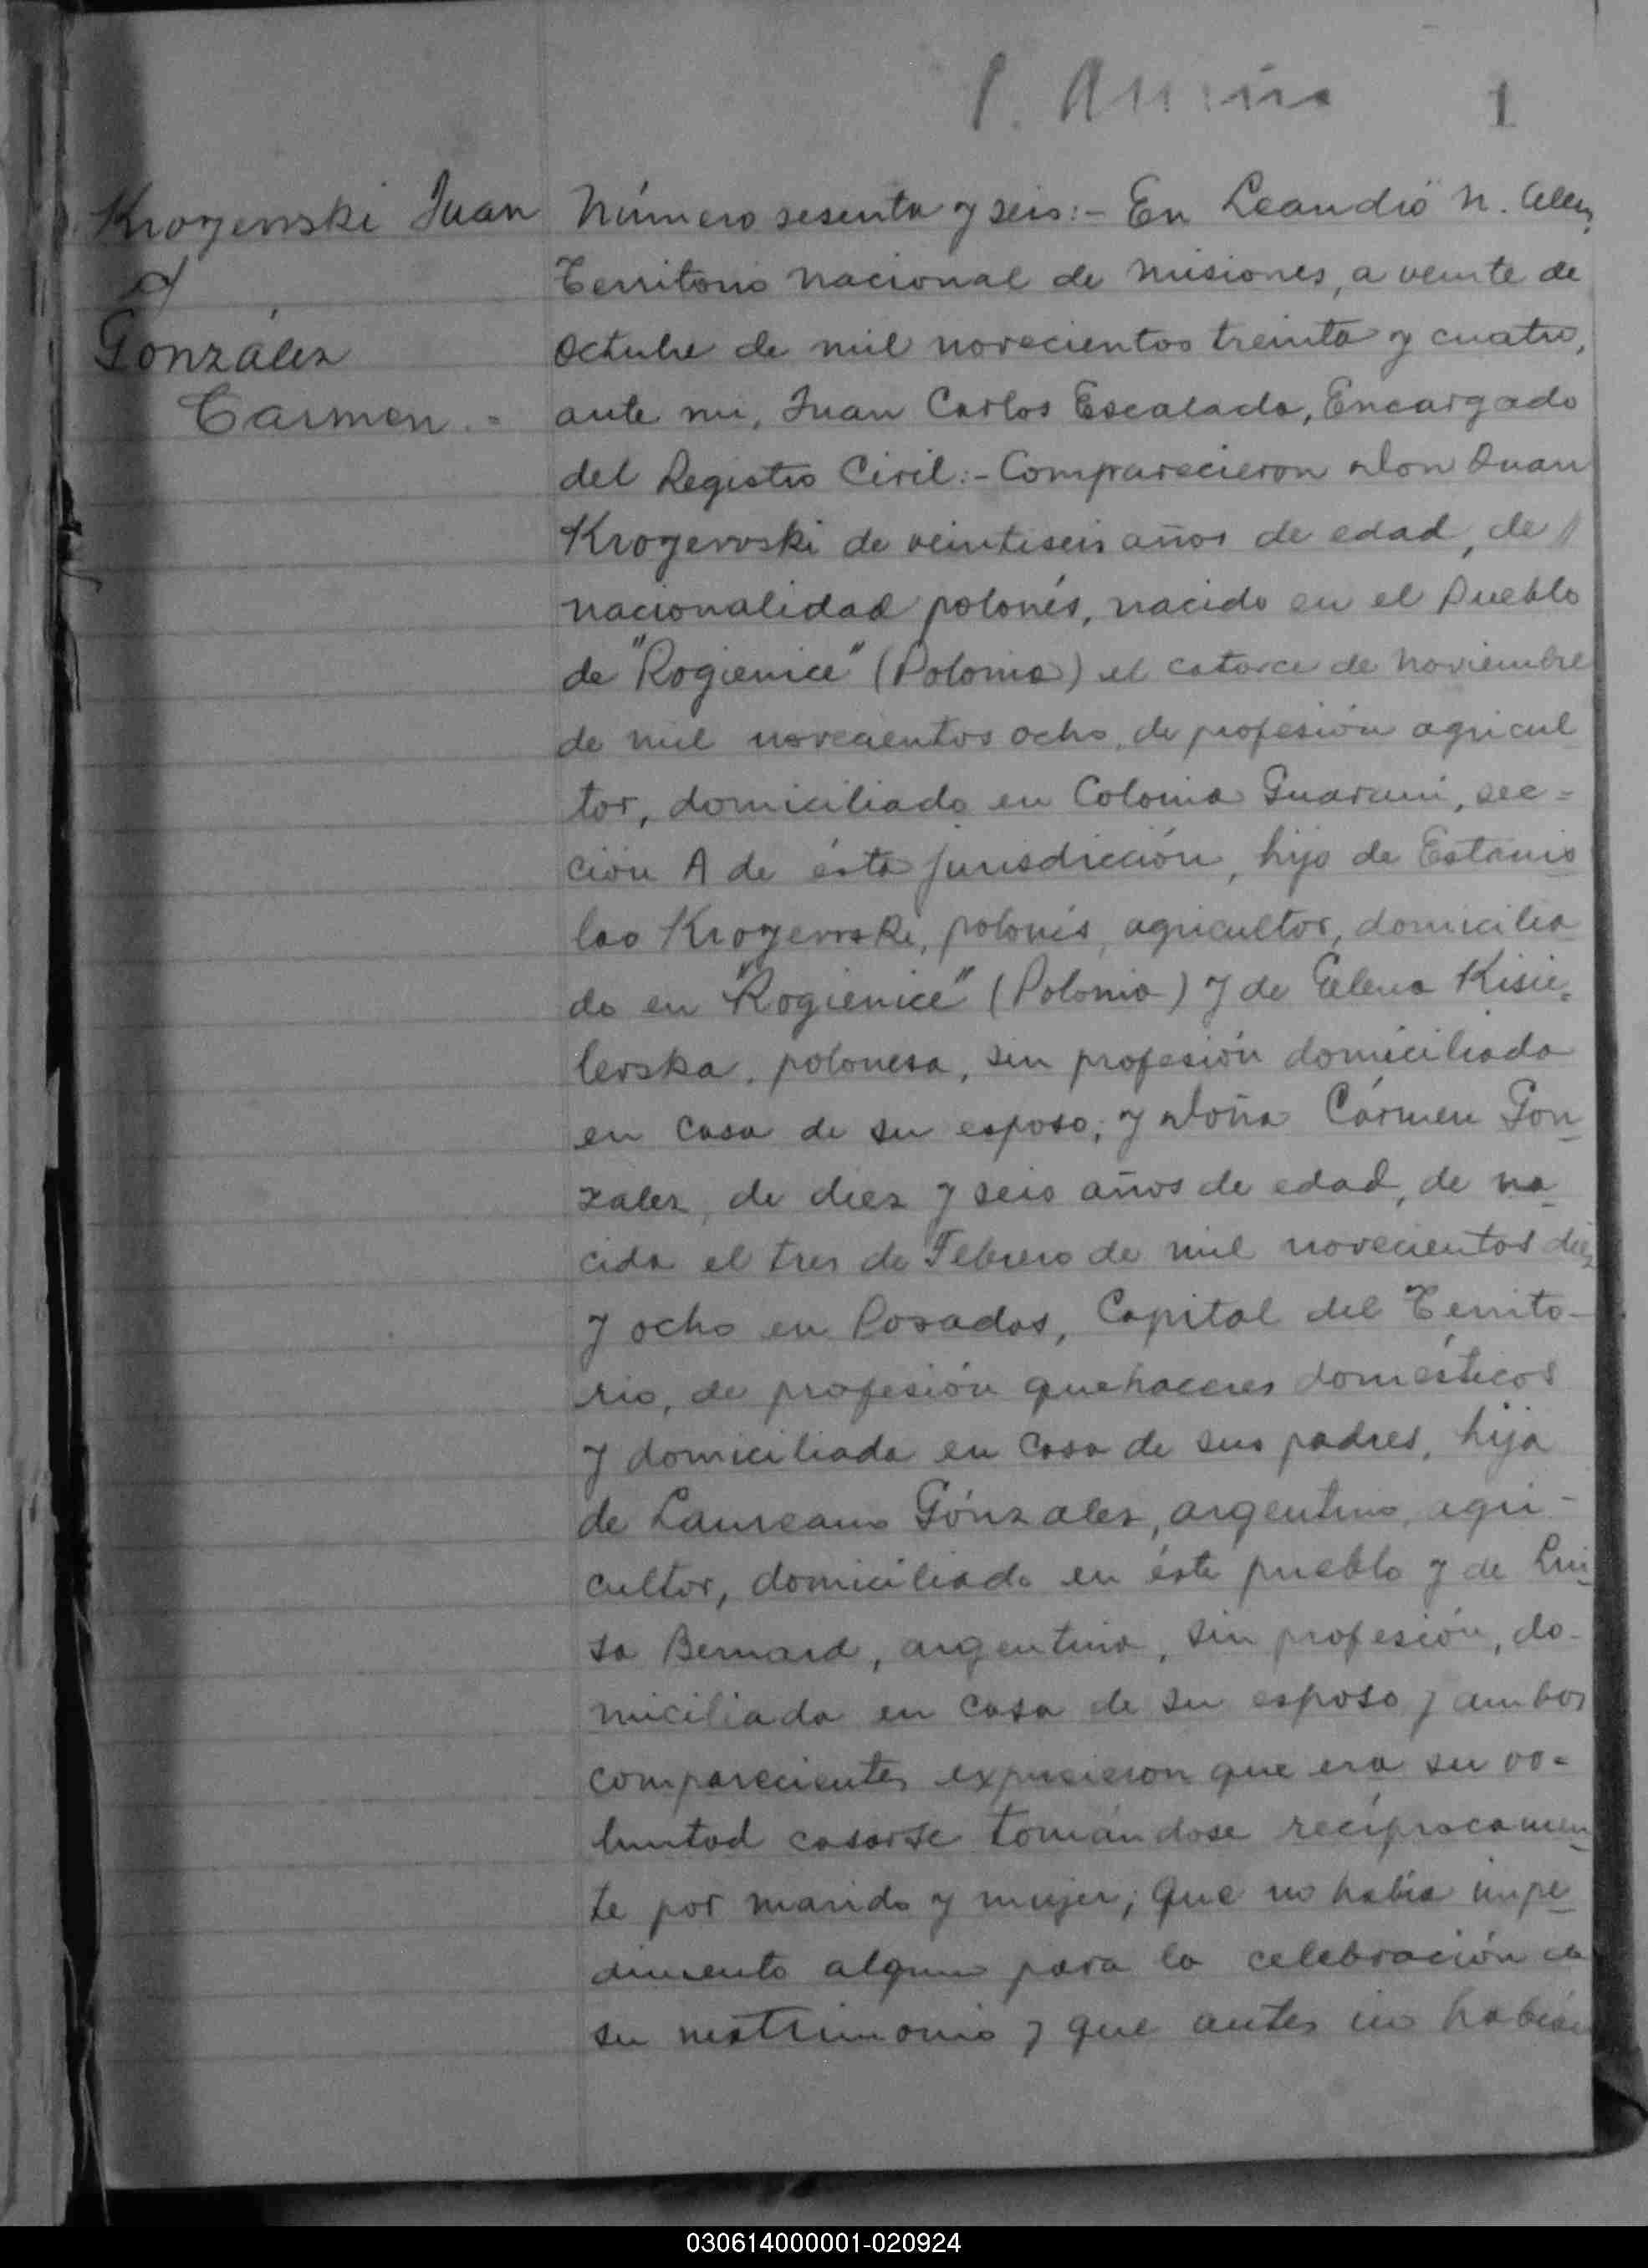 1
Kroyerski Juan
y
González
Carmen.-
Número sesenta y seis:- En Leandro N. Alem,
Territorio nacional de Misiones, a veinte de
octubre de mil novecientos treinta y cuatro,
ante mi, Juan Carlos Escalada, Encargado
del Registro Civil:- Comparecieron Don Juan
Kroyerski de veintiseis años de edad, de
nacionalidad polonés, nacido en el Pueblo
de "Rogienice" (Polonia) el catorce de Noviembre
de mil novecientos ocho, de profesión agricul
tor, domiciliado en Colonia Guarani, sec=
ción A de ésta jurisdicción, hijo de Estanis
lao Kroyerski, polonés, agricultor, domicilia
do en "Rogienice" (Polonia) y de Elena Kisie=
lerska, polonesa, sin profesión domiciliada
en casa de su esposo; y Doña Cármen Gon
zalez, de diez y seis años de edad, de na
cida el tres de Febrero de mil novecientos diez
y ocho en Posadas, Capital del Territo-
rio, de profesión quehaceres domésticos
y domiciliada en casa de sus padres, hija
de Laureano Gónzalez, argentino, agri-
cultor, domiciliado en éste pueblo y de Lui
sa Bernard, argentina, sin profesión, do-
miciliada en casa de su esposo y ambos
comparecientes expusieron que era su vo=
luntad casarse tomándose recíprocamen
te por marido y mujer; que no había impe
dimento alguno para la celebración de
su matrimonio y que antes no habían
030614000001-020924